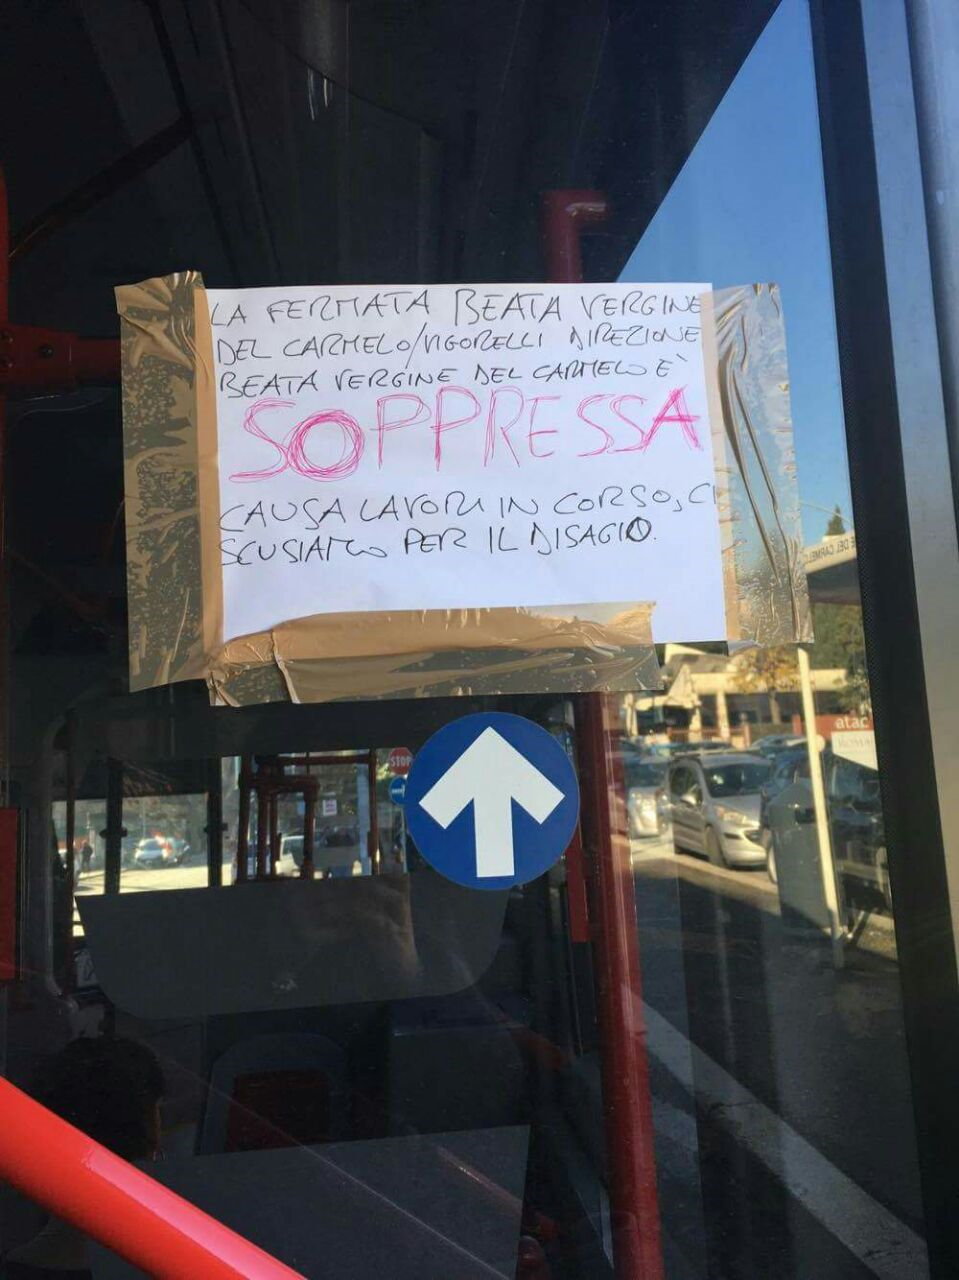 LA FERMATA BEATA VERGINE
DEL CARMELO/VIGORELLI DIREZIONE
BEATA VERGINE DEL CARMELO È
SOPPRESSA
CAUSA LAVORI IN CORSO, CI
SCUSIAMO PER IL DISAGIO.
E DEL CARMEL
STOP
atac